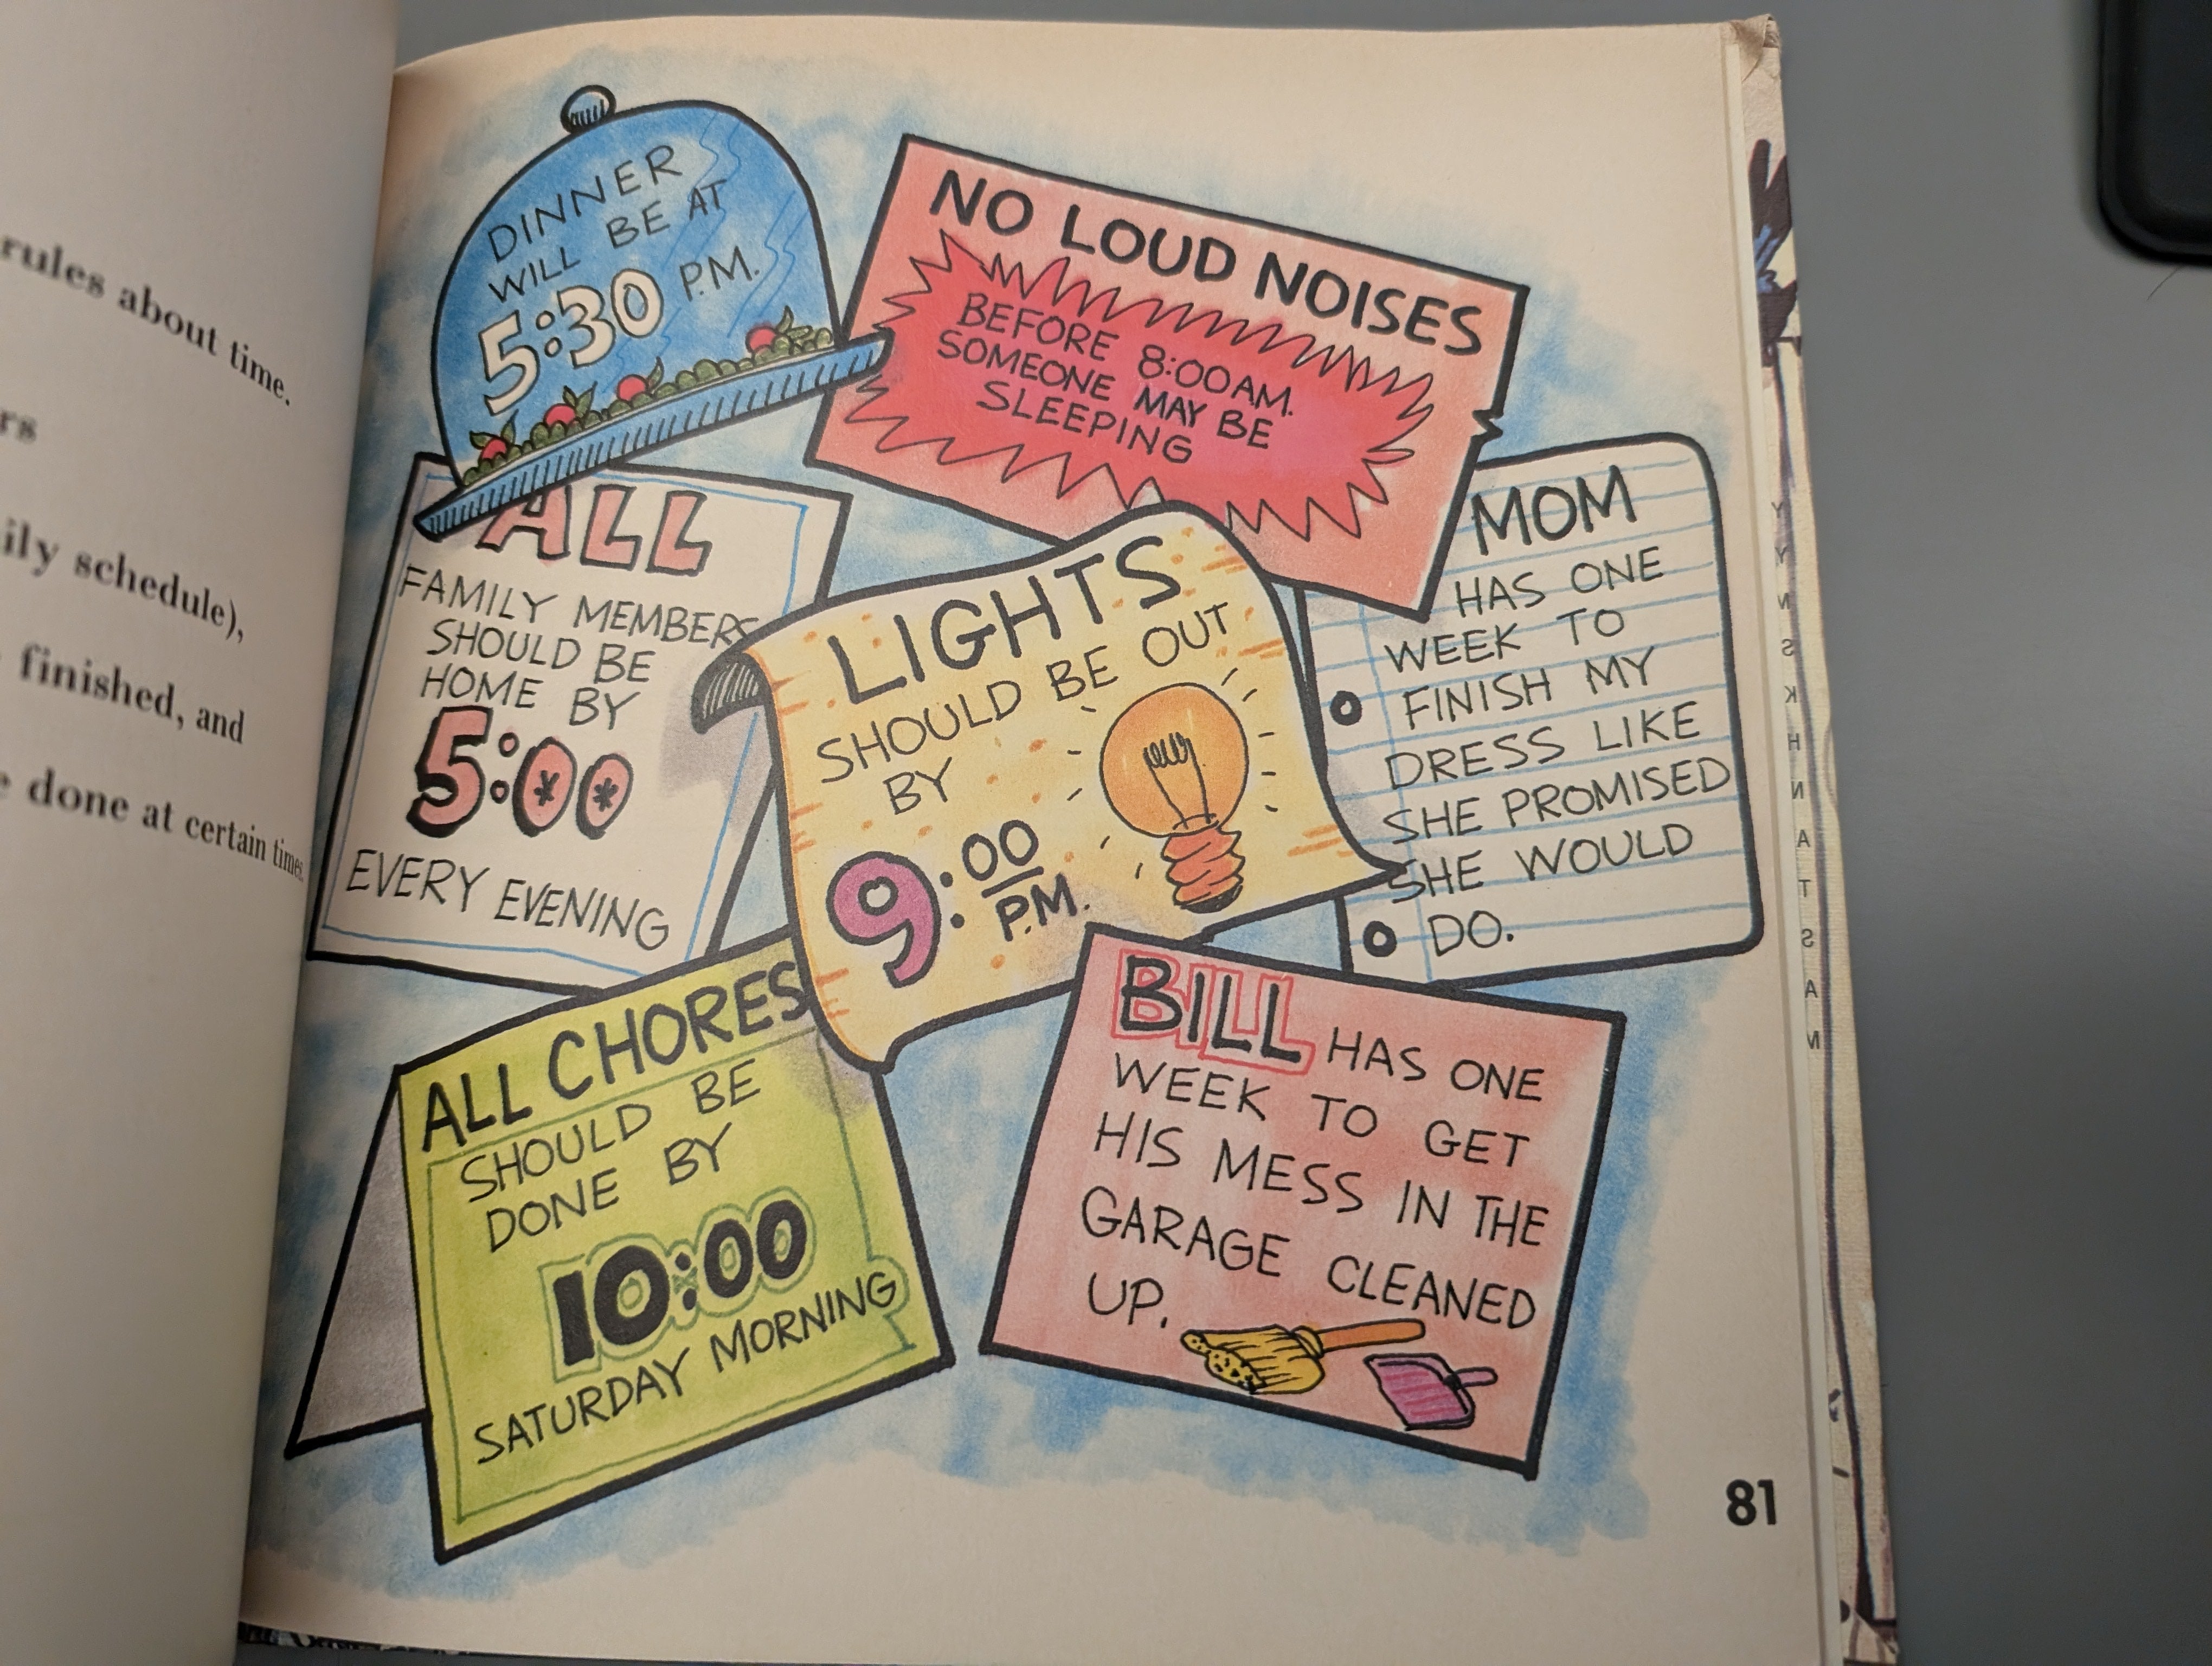 rules about time.
schedule),
finished, and
done at certain times.
DINNER
WILL BE AT
5:30 P.M.
NO LOUD NOISES
BEFORE 8:00 AM.
SOMEONE MAY BE
SLEEPING
ALL
FAMILY MEMBERS
SHOULD BE
HOME BY
5:00
EVERY EVENING
LIGHTS
SHOULD BE OUT
BY
9:00
P.M.
MOM
HAS ONE
WEEK TO
FINISH MY
DRESS LIKE
SHE PROMISED
SHE WOULD
DO.
ALL CHORES
SHOULD BE
DONE BY
10:00
SATURDAY MORNING
BILL HAS ONE
WEEK TO GET
HIS MESS IN THE
GARAGE CLEANED
UP.
81